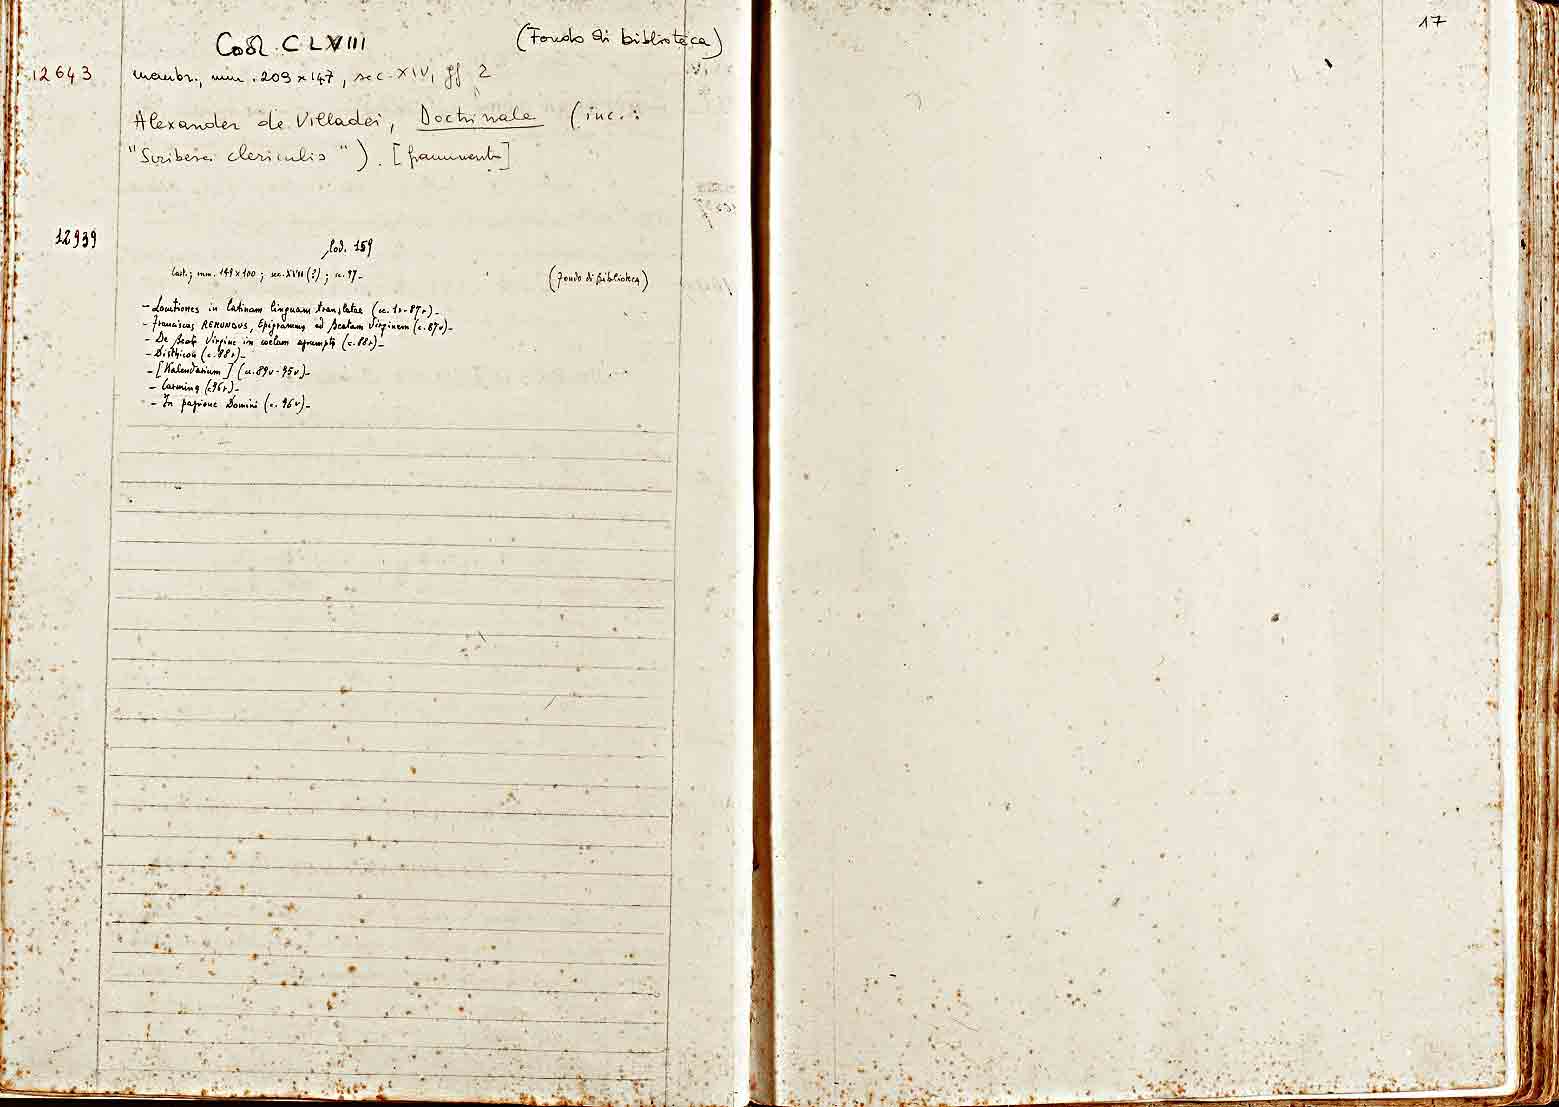 17
Cod. CLVIII (Fondo di biblioteca)
12643 membr., mm. 209 x 147, sec. XIV, ff 2
Alexander de Villadei, Doctrinale (inc.:
"Scribere clericulis"). [frammento]
12939
Cod. 159
Cart.; mm. 149 x 100; sec. XVII (?); cc. 97-
(Fondo di Biblioteca)
- Locutiones in latinam linguam translatae (cc. 1r-87r)-
- Franciscus REMUNDUS, Epigramma ad Beatam Virginem (c. 87v)-
- De Beata Virgine in coelum assumpta (c. 88r)-
- Disthicon (c. 88r)-
- [Kalendarium] (cc. 89v-95v)-
- Carmina (c. 96r)-
- In passione Domini (c. 96v)-